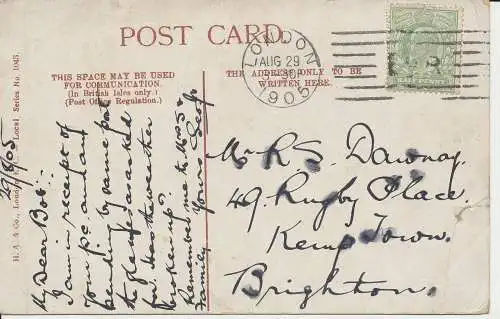 POST CARD.
THIS SPACE MAY BE USED
FOR COMMUNICATION.
(In British Isles only.)
(Post Office Regulation.)
THE ADDRESS ONLY TO BE
WRITTEN HERE.
LONDON
AUG 29
1905
H. A. & Co., London
Local Series No. 1045.
29/8/05
My Dear Bob:-
I am in receipt of
your p.c. and am
sending by same post
the you asked
for. Has the weather
broken up?
Remember me to
family. Yours
Mr R S. Dawnay.
49 Rugby Place.
Kemp Town.
Brighton.